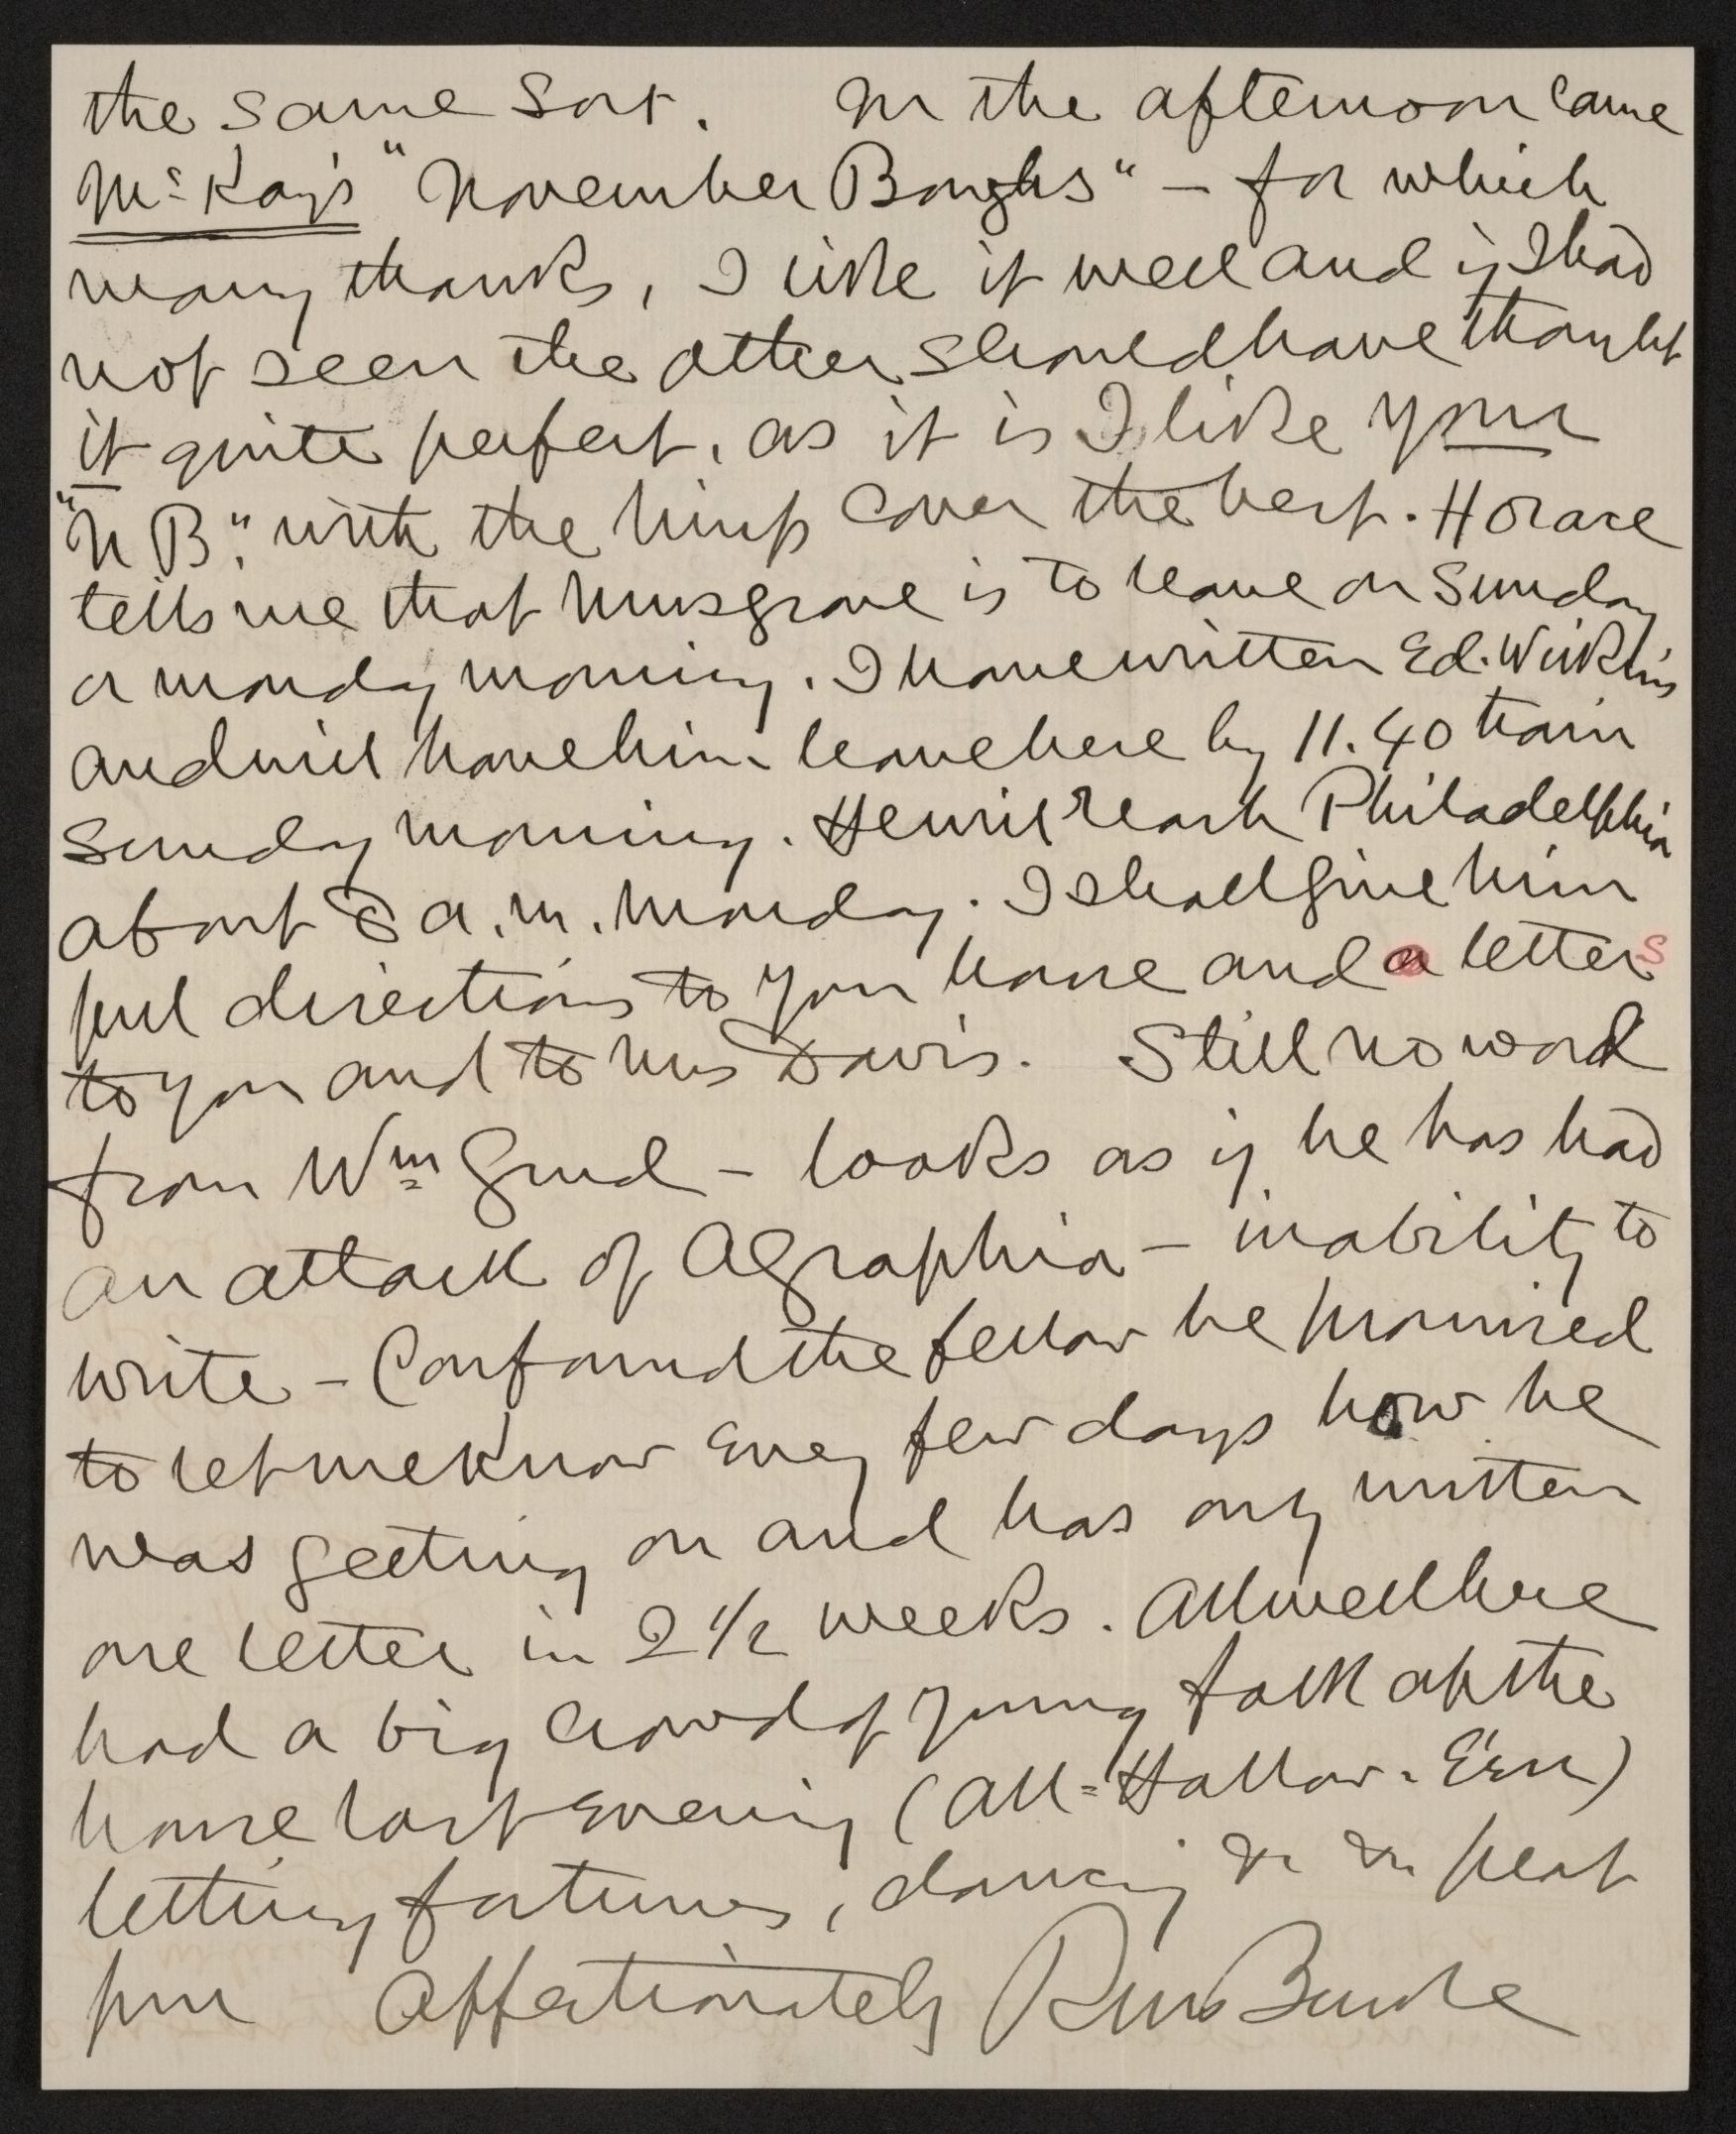 the same sort. In the afternoon came
McKay's "November Boughs" — for which
many thanks, I like it well and if I had
not seen the other should have thought
it quite perfect, as it is I like your
"N B." with the limp cover the best. Horace
tells me that Musgrove is to leave on Sunday
or Monday morning. I have written Ed. Wilkins
and will have him leave here by 11.40 train
Sunday morning. He will reach Philadelphia
about 8 a.m. Monday. I shall give him
full directions to your house and a letters
to you and to Mrs Davis. Still no word
from Wm Gurd — looks as if he has had
an attack of Agraphia — inability to
write — Confound the fellow he promised
to let me know every few days how he
was getting on and has only written
one letter in 2 1/2 weeks. All well here
had a big crowd of young folk at the
house last evening (All=Hallow-E'en)
telling fortunes, dancing &c &c great
fun Affectionately RM Bucke